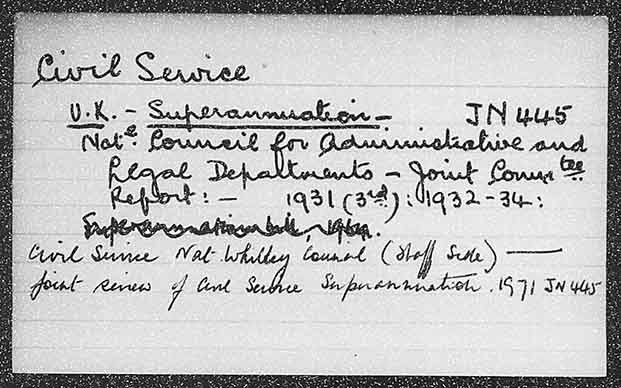 Civil Service
U.K. - Superannuation - JN 445
Natˡ Council for Administrative and
Legal Departments - Joint Commtee
Report: - 1931 (3rd): 1932-34:
Superannuation bill, 1964.
Civil Service Nat. Whitley Council (Staff Side) —
Joint review of Civil Service Superannuation. 1971 JN 445